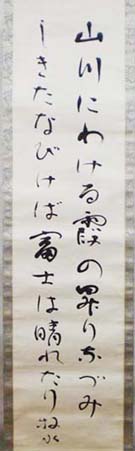 山川にわける霞の罪りなづみ
しきたなびけば富士は晴れたり 牧水